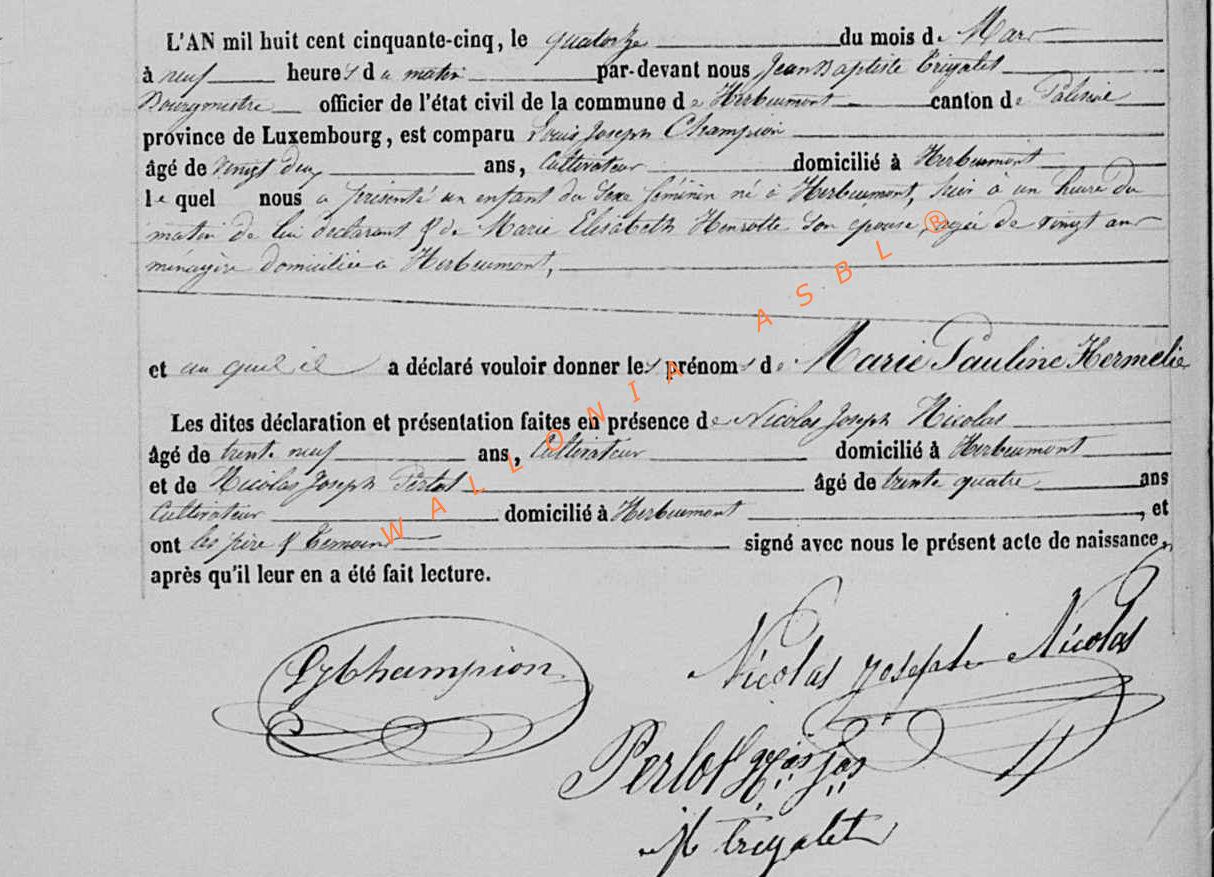 L'AN mil huit cent cinquante-cinq, le quatorze du mois de Mars
à neuf heures du matin par-devant nous Jean Baptiste Trigalet
Bourgmestre officier de l'état civil de la commune de Herbeumont canton de Paliseul
province de Luxembourg, est comparu Louis Joseph Champion
âgé de vingt deux ans, Cultivateur domicilié à Herbeumont
le quel nous a présenté un enfant du sexe féminin né à Herbeumont, hier à un heure du
matin de lui déclarant & de Marie Elisabeth Henrotte son epouse, agée de vingt ans
ménagère domiciliée à Herbeumont,
et au quel il a déclaré vouloir donner les prénoms de Marie Pauline Hermelie
Les dites déclaration et présentation faites en présence de Nicolas Joseph Nicolas
âgé de trente neuf ans, Cultivateur domicilié à Herbeumont
et de Nicolas Joseph Perlot âgé de trente quatre ans
Cultivateur domicilié à Herbeumont, et
ont les père & témoins signé avec nous le présent acte de naissance,
après qu'il leur en a été fait lecture.
WALLONIA ASBL ®
LJChampion
Nicolas joseph Nicolas
Perlot Nas Jos
Trigalet